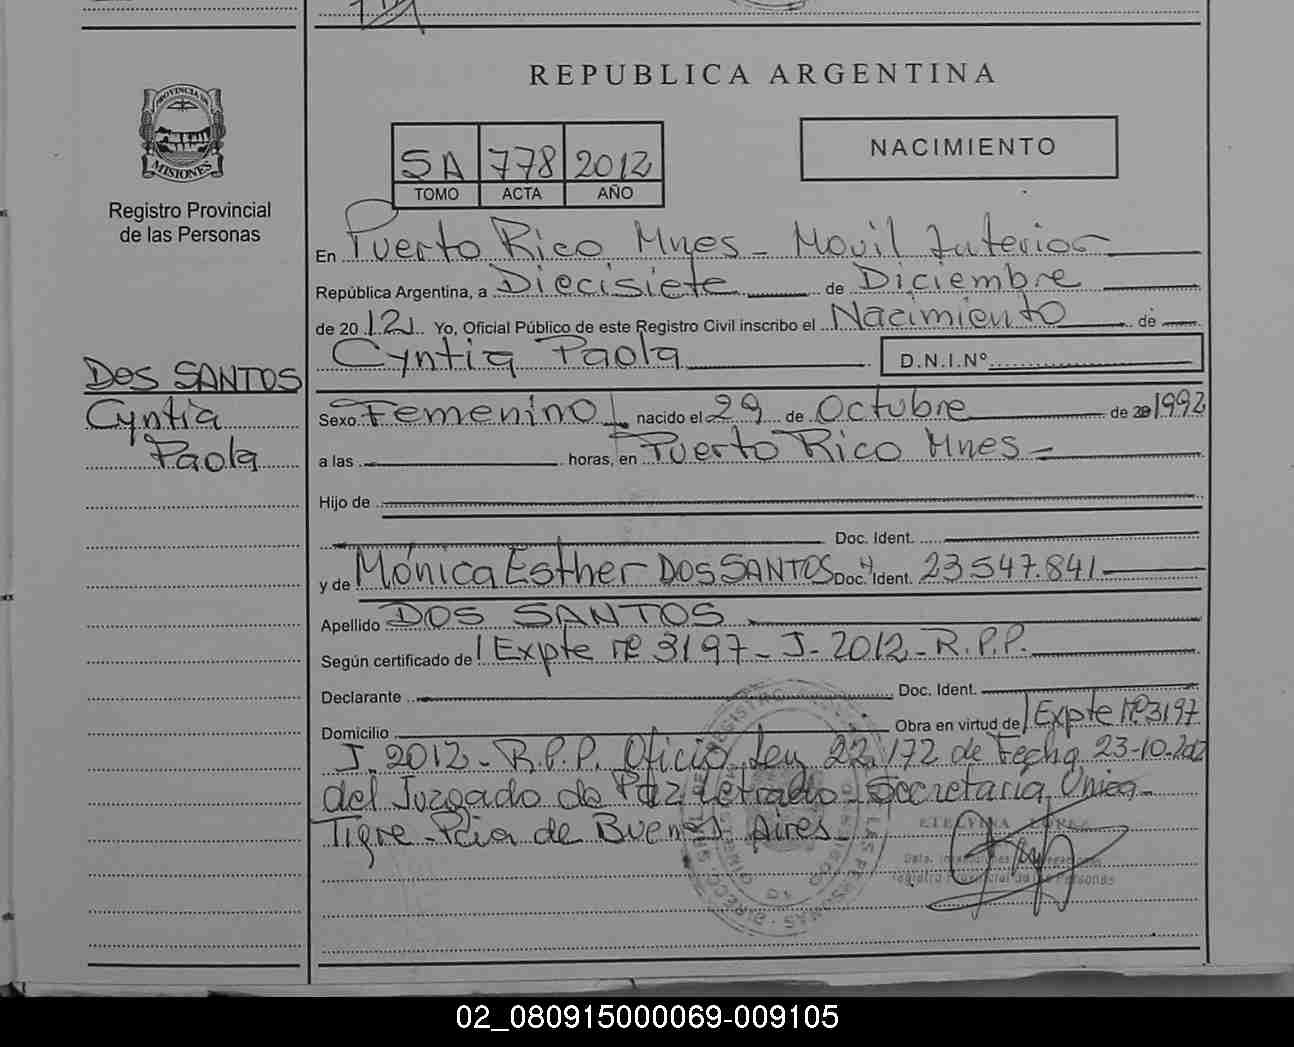 REPUBLICA ARGENTINA
PROVINCIA DE
MISIONES
Registro Provincial
de las Personas
5A 778 2012
TOMO ACTA AÑO
NACIMIENTO
En Puerto Rico Mnes - Movil Interior
República Argentina, a Diecisiete de Diciembre
de 20 12 Yo, Oficial Público de este Registro Civil inscribo el Nacimiento de
Cyntia Paola D.N.I.Nº
DOS SANTOS
Cyntia
Paola
Sexo Femenino nacido el 29 de Octubre de 20 1992
a las horas, en Puerto Rico Mnes -
Hijo de
Doc. Ident.
y de Mónica Esther DOS SANTOS Doc. Ident. 23.547.841
Apellido DOS SANTOS
Según certificado de Expte nº 3197 - J - 2012 - R.P.P.
Declarante Doc. Ident.
Domicilio Obra en virtud de Expte Nº 3197
J. 2012 - R.P.P. Oficio Ley 22.172 de Fecha 23-10-2012
del Juzgado de Paz Letrado - Secretaría Única -
Tigre - Pcia de Buenos Aires -
Registro Provincial de las Personas
02_080915000069-009105